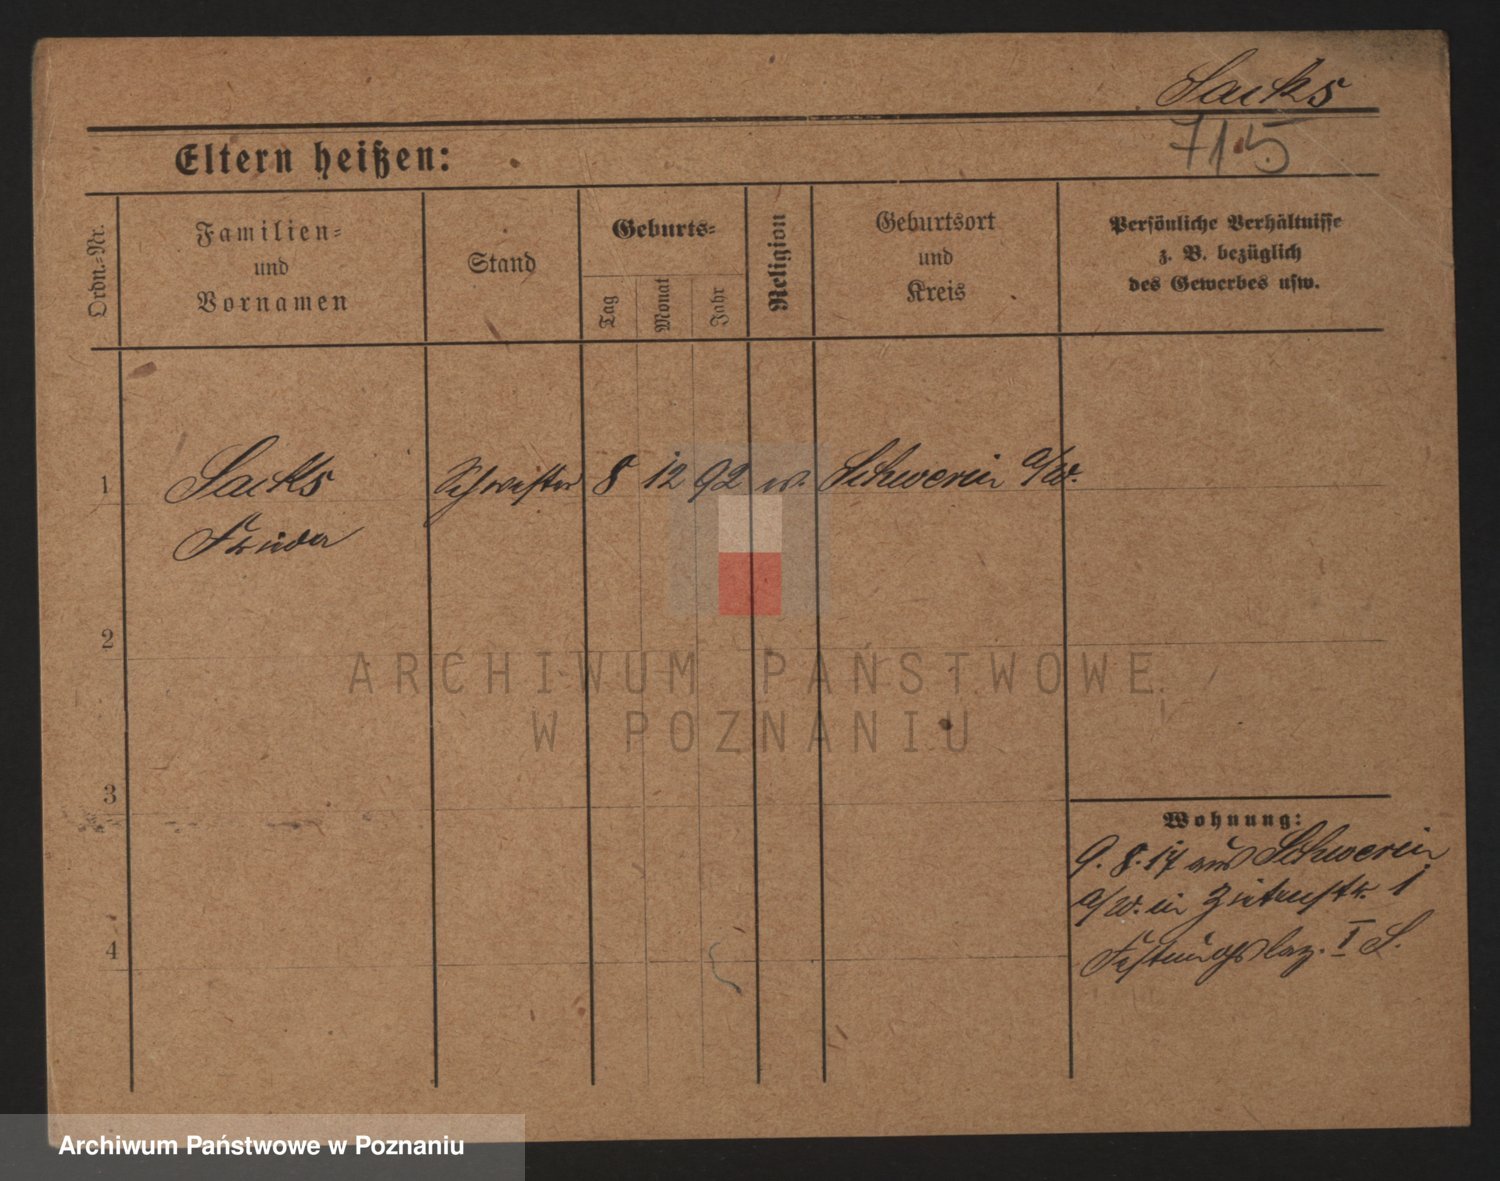 Sacks
715
Eltern heißen:
Ordn.-Nr.
Familien-
und
Vornamen
Stand
Geburts-
Tag
Monat
Jahr
Religion
Geburtsort
und
Kreis
Persönliche Verhältnisse
z. B. bezüglich
des Gewerbes usw.
1 Sacks Schwester 8 12 92 Schwerin a/W.
Frieda
2
3
4
Wohnung:
9. 8. 17 aus Schwerin
a/W. in 1
Festungslaz. I S.
ARCHIWUM PAŃSTWOWE
W POZNANIU
Archiwum Państwowe w Poznaniu